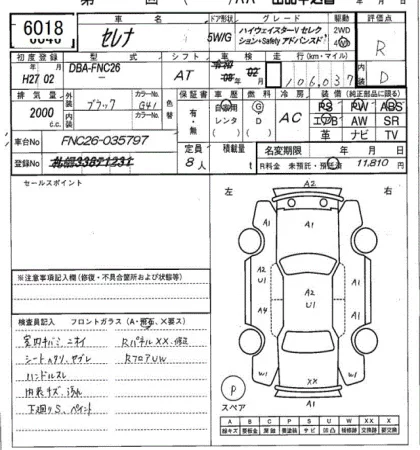 6018
車名
セレナ
ドア形状
5W/G
グレード
ハイウェイスターVセレク
ション+Safetyアドバンスド
駆動
2WD
4WD
評価点
R
初度登録
年 月
H27 02
型式
DBA-FNC26
シフト
AT
車検
年 月
02
走行(km・マイル)
106,037
内装
D
排気量
2000
c.c.
外装
ブラック
カラーNo.
G41
内装
カラーNo.
色替
保証書
有・無
車歴
自家用
レンタ
( )
燃料
G
D
( )
冷房
AC
装備(純正部品に限る)
PS PW ABS
エアB AW SR
革 ナビ TV
車台No
FNC26-035797
登録No
札幌33871231
定員
8人
積載量
t
名変期限 年 月 日
R料金 未預託・預託済 11,810
セールスポイント
左 右
A2
A1
A1
A1
A2
U1
A2
U1
A4
A1
W1
W1
XX
A1
P
スペア
※注意事項記入欄(修復・不具合箇所および状態等)
検査員記入 フロントガラス(A・飛石・×要ス)
室内キバミ ニオイ
Rパネル XX.修正
シート スリ、ヤブレ
RフロアUW
ハンドルスレ
内装キズ・汚れ
下廻りS、ペイント
A B C P S U W XX X
線キズ 要板金 腐蝕 要塗装 サビ 凹凸 補修跡 交換跡 要交換